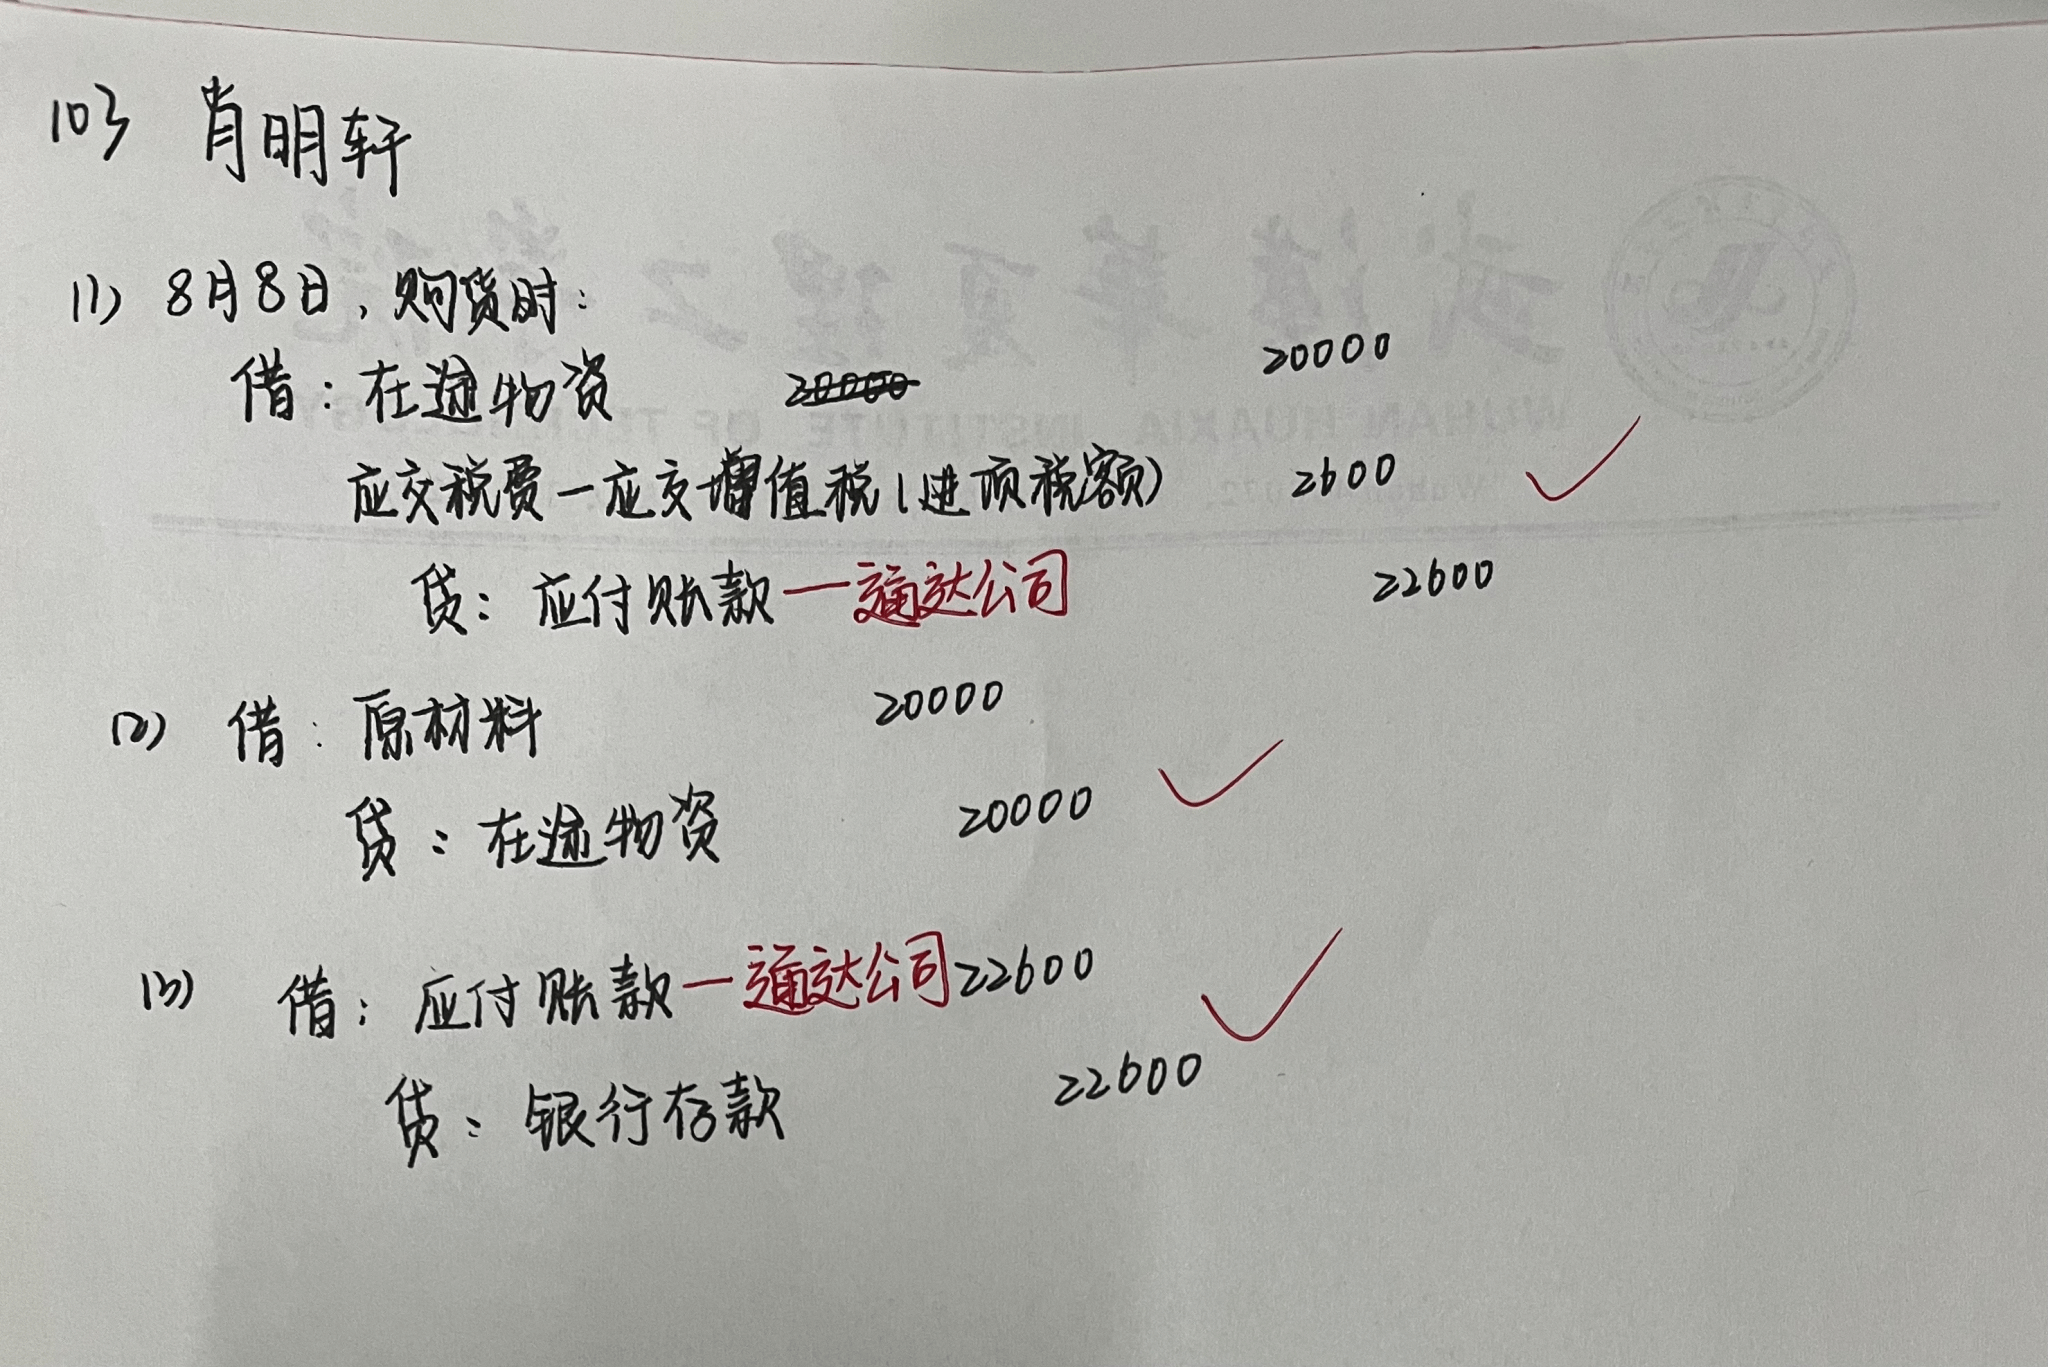 103 肖明轩
(1) 8月8日，购货时：
借：在途物资 20000 20000
应交税费—应交增值税(进项税额) 2600
贷：应付账款—通达公司 22600
(2) 借：原材料 20000
贷：在途物资 20000
(3) 借：应付账款—通达公司 22600
贷：银行存款 22600
武汉华夏理工学院
WUHAN HUAXIA INSTITUTE OF TECHNOLOGY